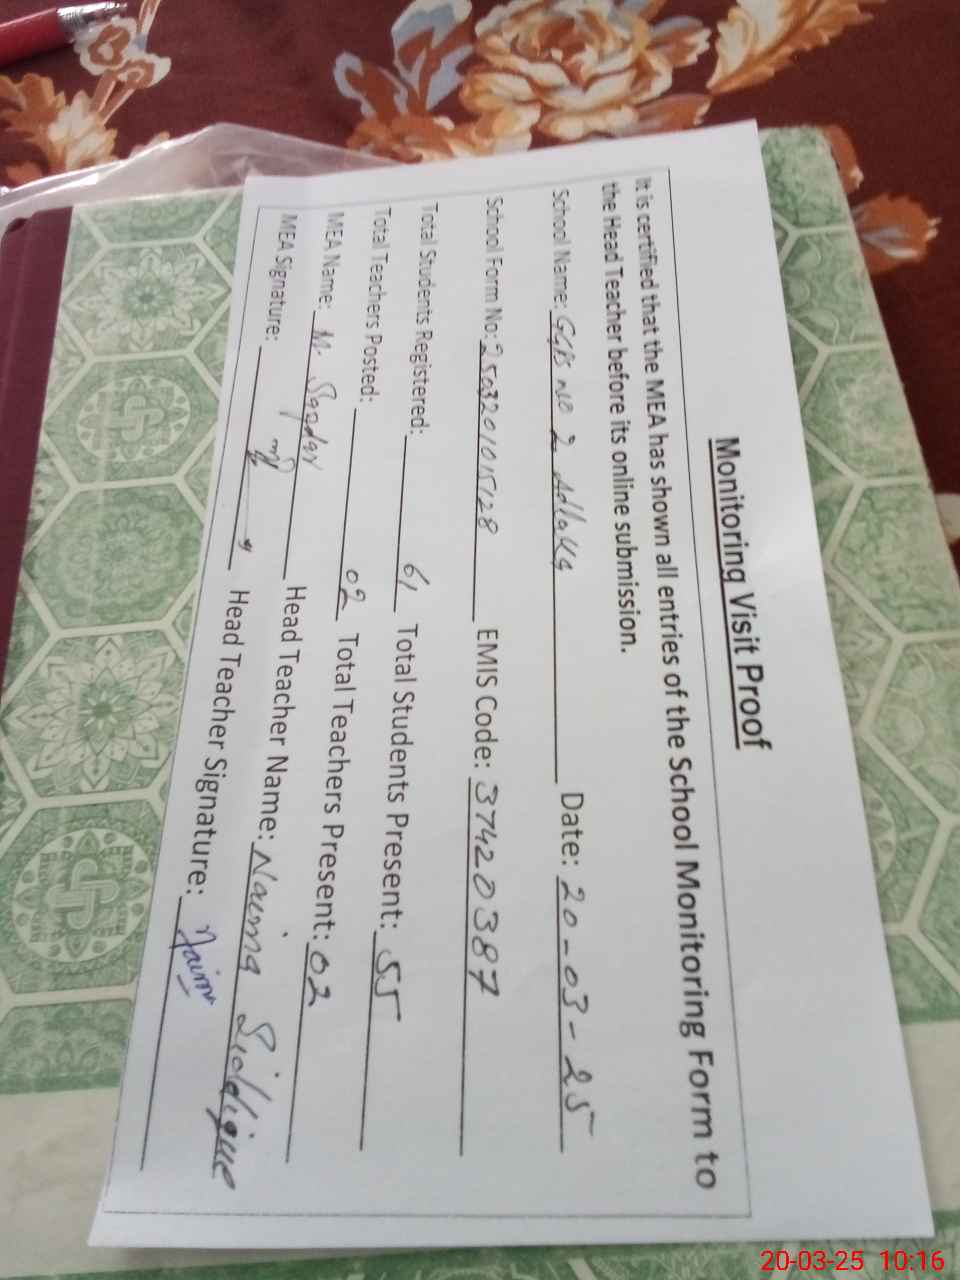 Monitoring Visit Proof
It is certified that the MEA has shown all entries of the School Monitoring Form to
the Head Teacher before its online submission.
School Name: GGPS No 2 Adlaka Date: 20-03-25
School Form No: 2503201015128 EMIS Code: 37420387
Total Students Registered: 61 Total Students Present: 55
Total Teachers Posted: 02 Total Teachers Present: 02
MEA Name: M. Sqadar Head Teacher Name: Naima Siddique
MEA Signature: Head Teacher Signature: Naima
20-03-25 10:16